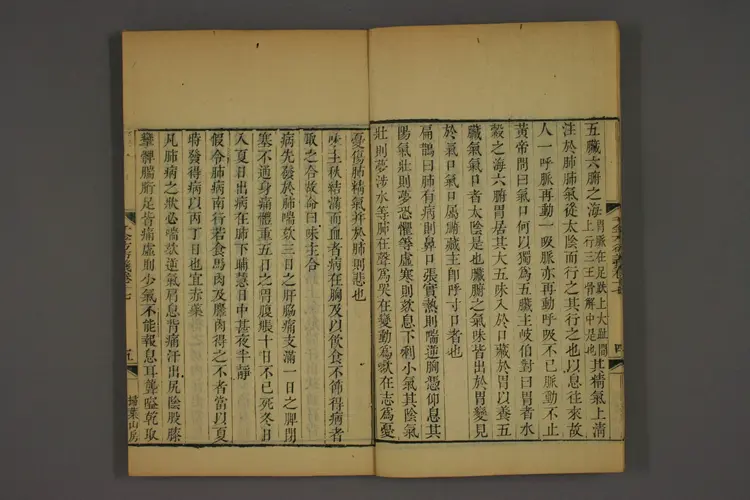 五臟六腑之海胃脈在足趺上大趾間上行三王骨解中是也其精氣上淸
注於肺肺氣從太陰而行之其行之也以息往來故
人一呼脈再動一吸脈亦再動呼吸不已脈動不止
黃帝問曰氣口何以獨爲五臟主岐伯對曰胃者水
穀之海六腑胃居其大五味入於口藏於胃以養五
臟氣氣口者太陰是也臟腑之氣味皆出於胃變見
於氣口氣口屬腑臟主卽呼寸口者也
扁鵲曰肺有病則鼻口張實熱則喘逆胸憑仰息其
陽氣壯則夢恐懼等虛寒則欬息下利少氣其陰氣
壯則夢涉水等肺在聲爲哭在變動爲欬在志爲憂
憂傷肺精氣并於肺則悲也
味主秋結滿而血者病在胸及以飲食不節得病者
取之合故命曰味主合
病先發於肺喘欬三日之肝脇痛支滿一日之脾閉
塞不通身痛體重五日之胃腹脹十日不已死冬日
入夏日出病在肺下晡慧日中甚夜半靜
假令肺病南行若食馬肉及麞肉得之不者當以夏
時發得病以丙丁日也宜赤藥
凡肺病之狀必喘欬逆氣肩息背痛汗出尻陰股膝
攣髀腨胻足皆痛虛則少氣不能報息耳聾嗌乾取
四
五
掃葉山房